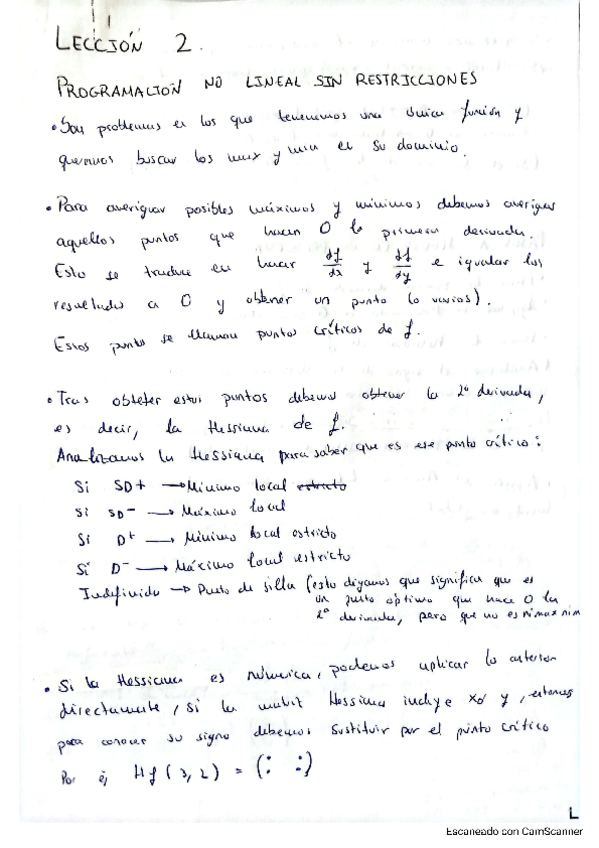 LECCIÓN 2.
PROGRAMACIÓN NO LINEAL SIN RESTRICCIONES
• Son problemas en los que tenemos una única función y
queremos buscar los max y min en su dominio.
• Para averiguar posibles máximos y mínimos debemos averiguar
aquellos puntos que hacen 0 la primera derivada.
Esto se traduce en hacer df/dx y df/dy e igualar los
resultados a 0 y obtener un punto (o varios).
Estos puntos se llaman puntos críticos de f.
• Tras obtener estos puntos debemos obtener la 2ª derivada,
es decir, la Hessiana de f.
Analizamos la Hessiana para saber que es ese punto crítico:
Si SD+ → Mínimo local estricto
Si SD- → Máximo local
Si D+ → Mínimo local estricto
Si D- → Máximo local estricto
Indefinido → Punto de silla (esto digamos que significa que es
un punto óptimo que hace 0 la
2ª derivada, pero que no es ni max ni min
• Si la Hessiana es númerica, podemos aplicar lo anterior
directamente, si la matriz Hessiana incluye x o y, entonces
para conocer su signo debemos sustituir por el punto crítico
Por ej, Hf(3,2) = (: :)
L
Escaneado con CamScanner